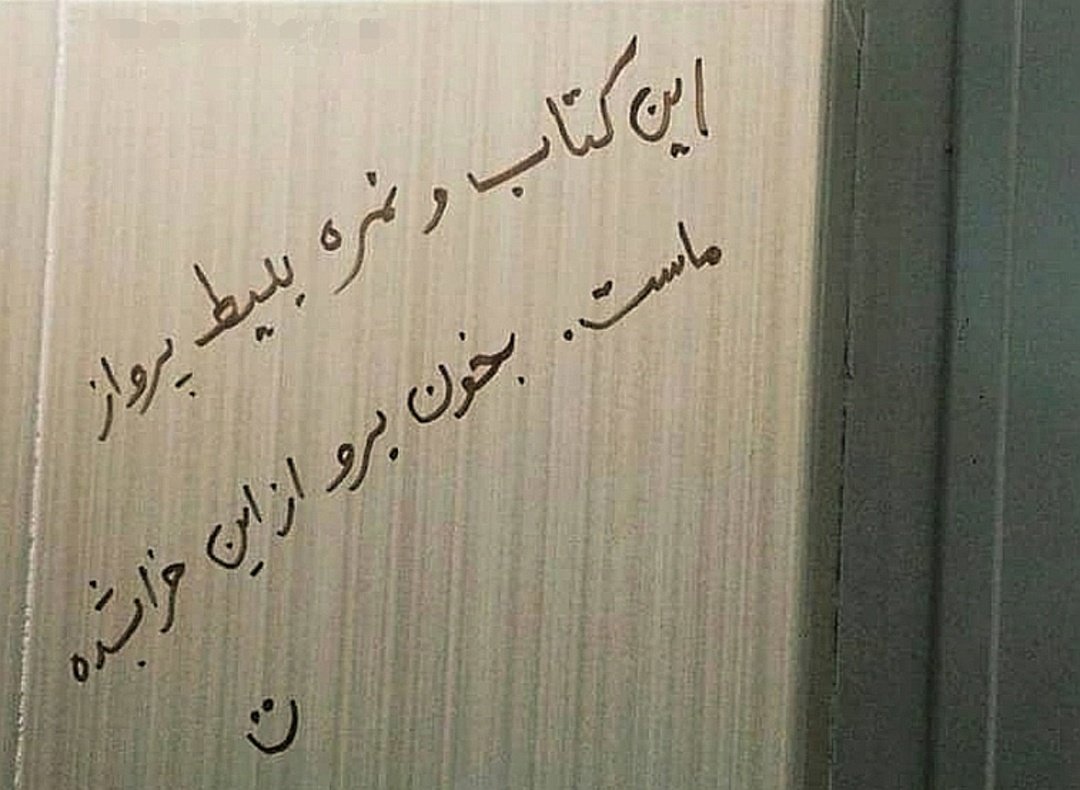 این کتاب و نمره بلیط پرواز
ماست. بخون برو از این خرابشده